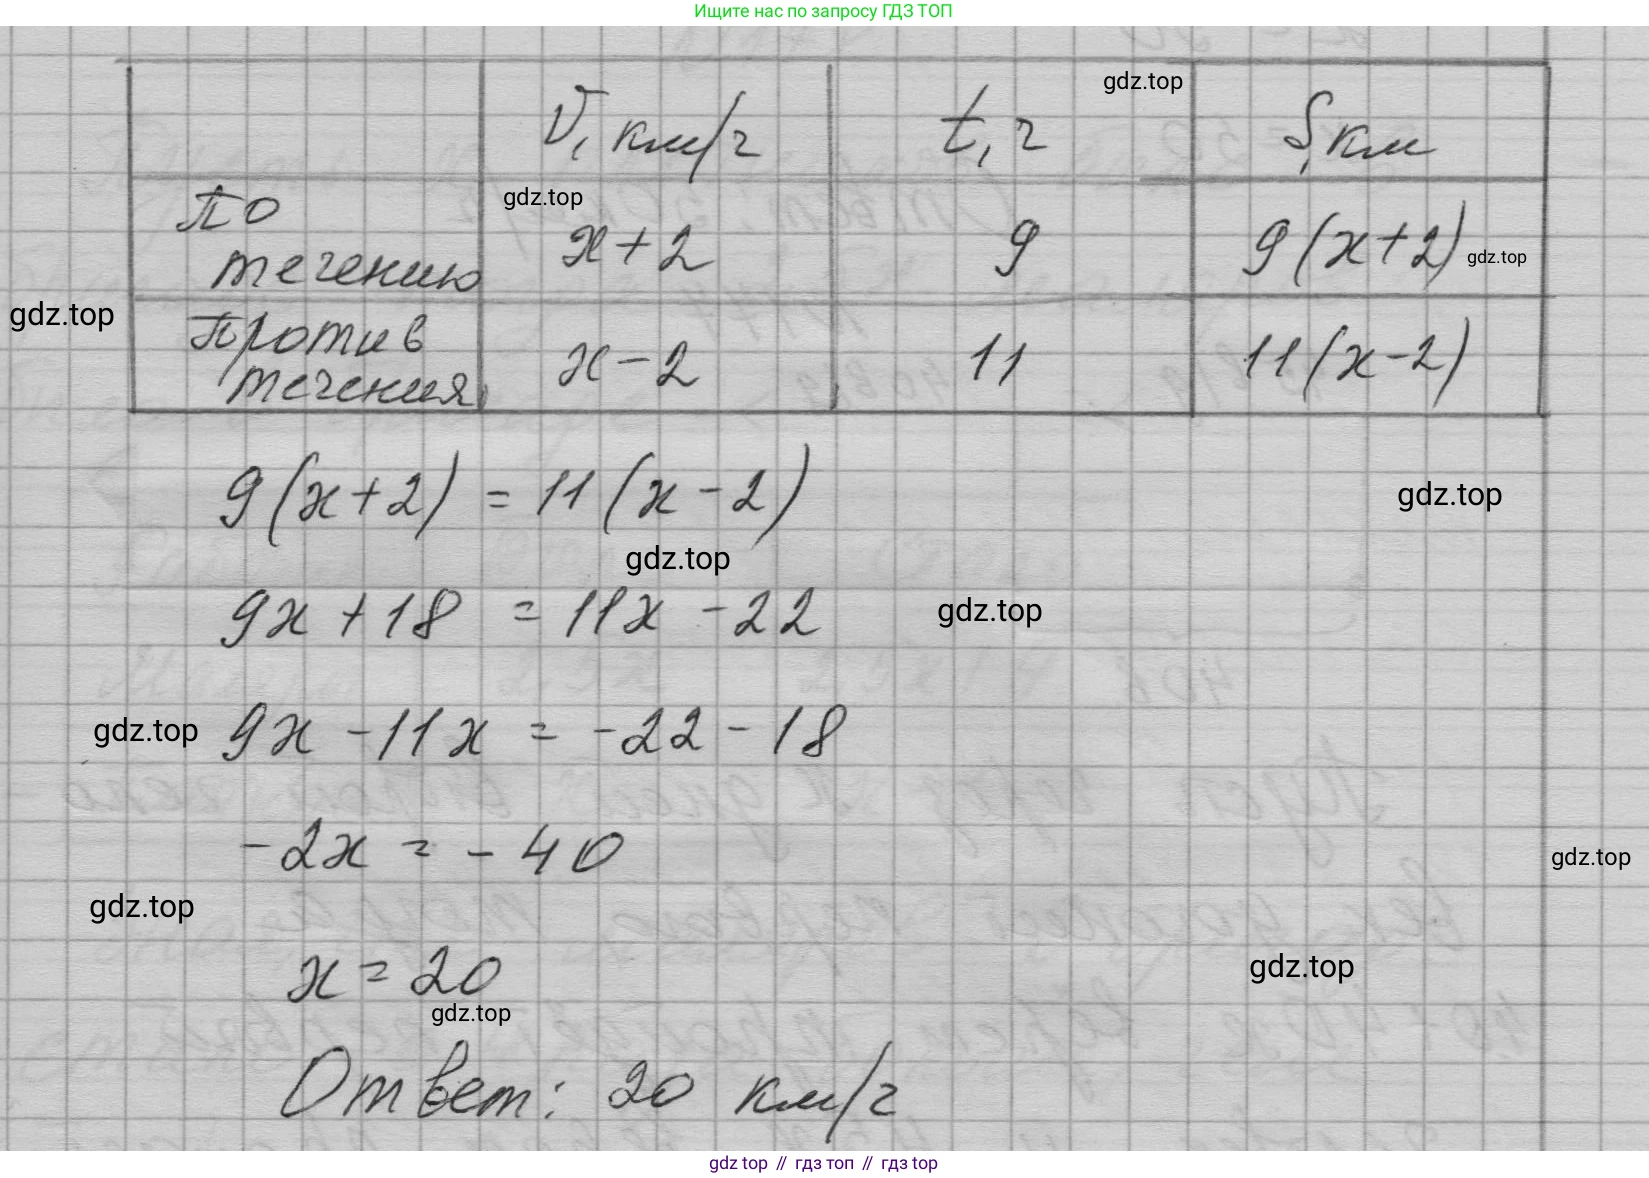 Ищите нас по запросу ГДЗ ТОП
gdz.top
V, км/ч t, ч S, км
gdz.top
по течению x+2 9 9(x+2) gdz.top
gdz.top
против течения x-2 11 11(x-2)
9(x+2) = 11(x-2)
gdz.top
gdz.top
9x+18 = 11x-22
gdz.top
gdz.top
9x-11x = -22-18
-2x = -40
gdz.top
gdz.top
x=20
gdz.top
gdz.top
Ответ: 20 км/ч
gdz top // гдз топ // гдз top